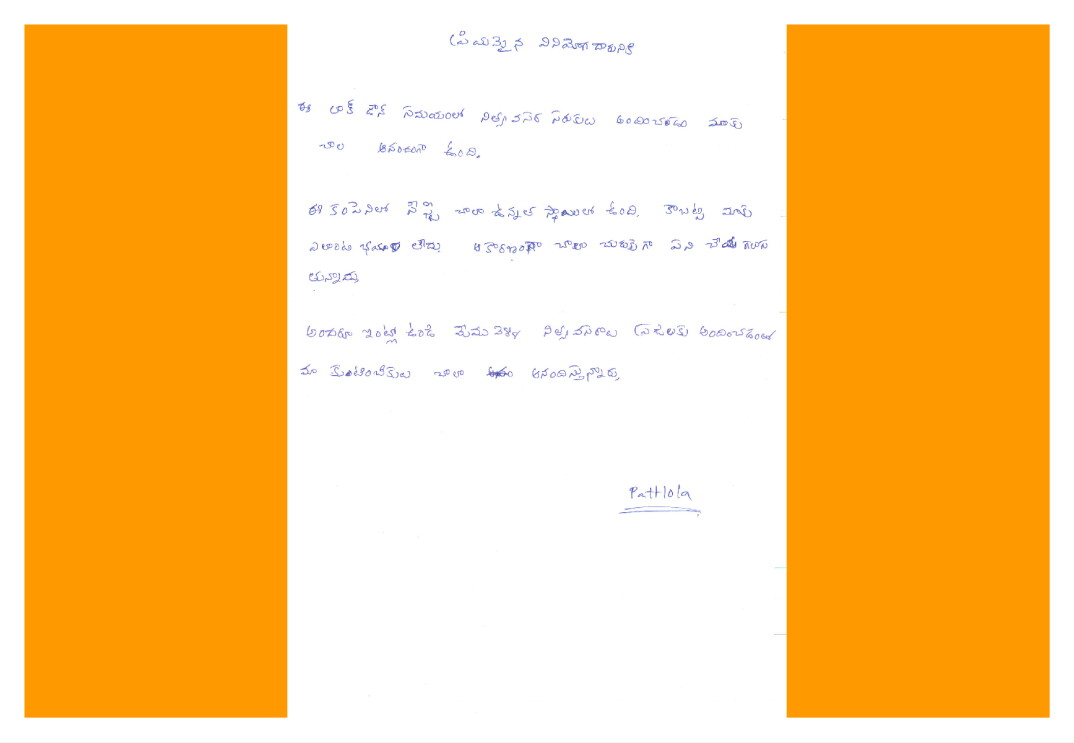 ప్రియమైన వినియోగదారునికి
ఈ లాక్ డౌన్ సమయంలో నిత్యవసర సరుకులు అందించడం మాకు
చాల ఆనందంగా ఉంది.
ఈ కంపెనిలో సేఫ్టి చాలా ఉన్నత స్థాయిలో ఉంది. కాబట్టి మాకు
ఎలాంటి భయం లేదు. ఆ కారణంగా చాలా చురుకైగా పని చేయ గలుగు
తున్నాము
అందరూ ఇంట్లో ఉండి మేము వెళ్ళి నిత్యవసరాలు ప్రజలకు అందించడంలో
మా కుంటింబికులు చాలా ఆనందిస్తున్నారు.
Pathlola